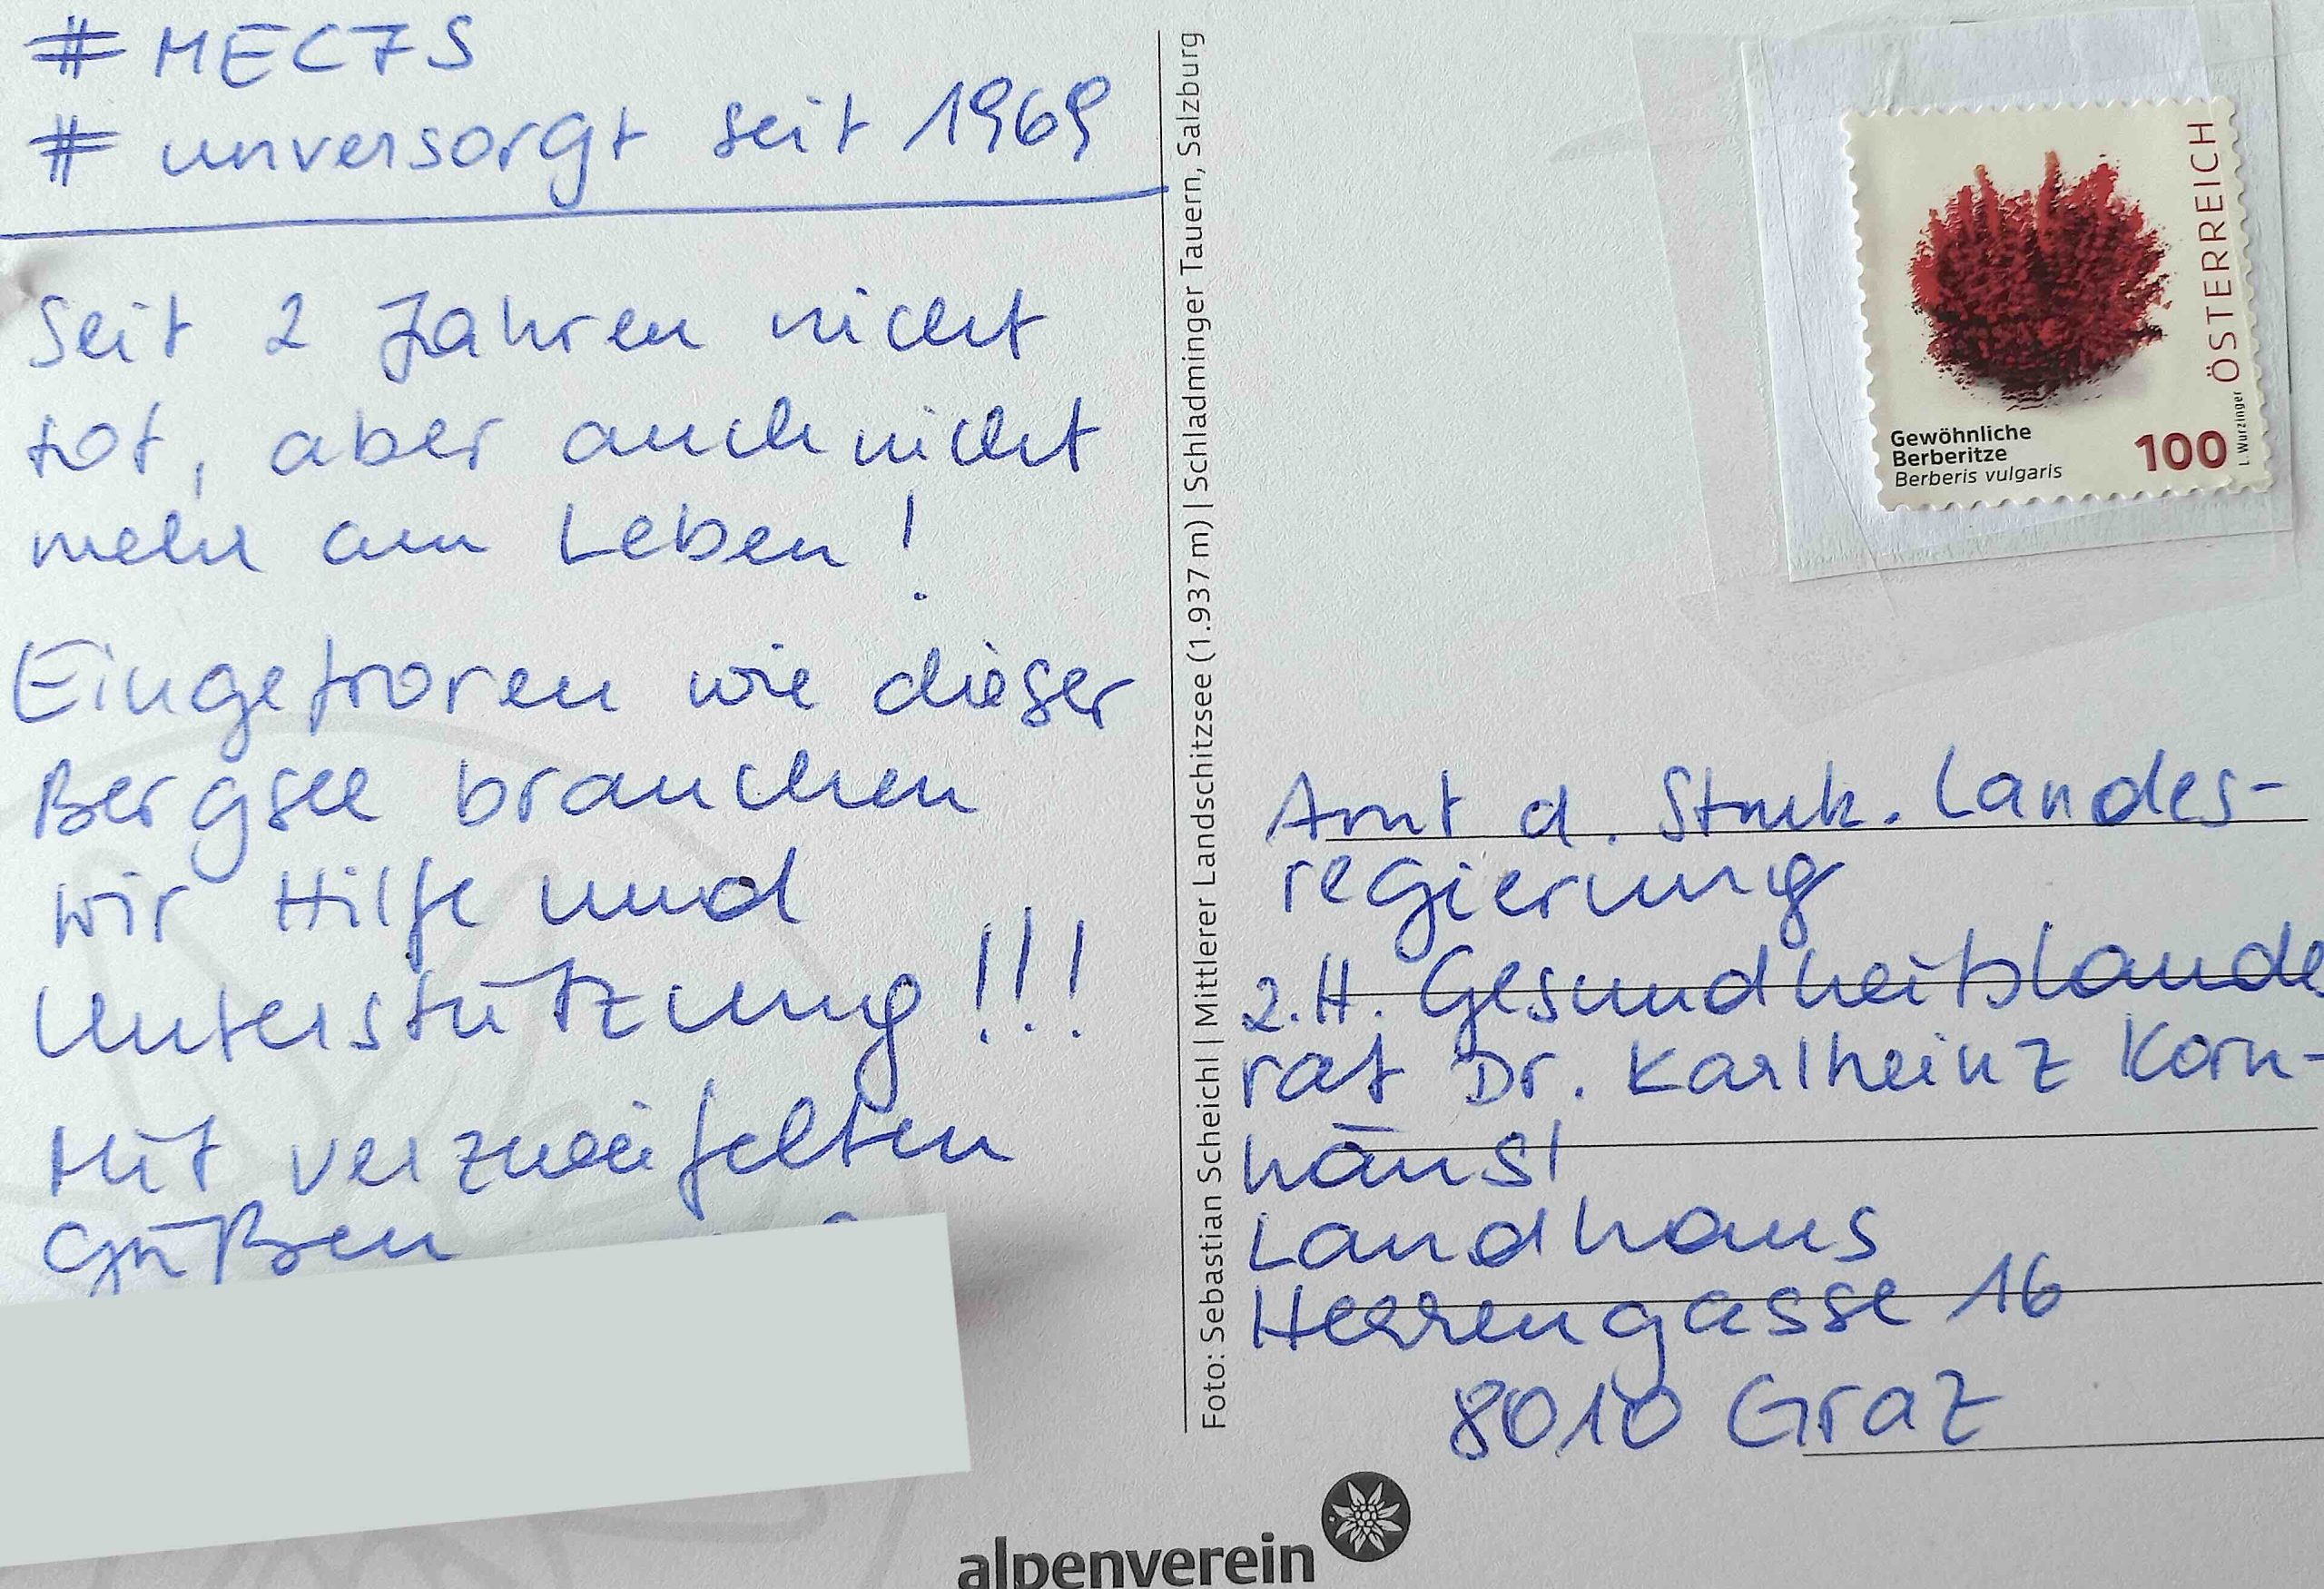 # MECFS
# unversorgt seit 1969
Seit 2 Jahren nicht
tot, aber auch nicht
mehr am Leben!
Eingefroren wie dieser
Bergsee brauchen
wir Hilfe und
Unterstützung!!!
Mit verzweifelten
Grüßen
Foto: Sebastian Scheichl | Mittlerer Landschitzsee (1.937 m) | Schladminger Tauern, Salzburg
ÖSTERREICH
Gewöhnliche
Berberitze
Berberis vulgaris
100
L. Wurzinger
Amt d. Stmk. Landes-
regierung
z.H. Gesundheitslandes
rat Dr. Karlheinz Korn-
häusl
Landhaus
Herrengasse 16
8010 Graz
alpenverein